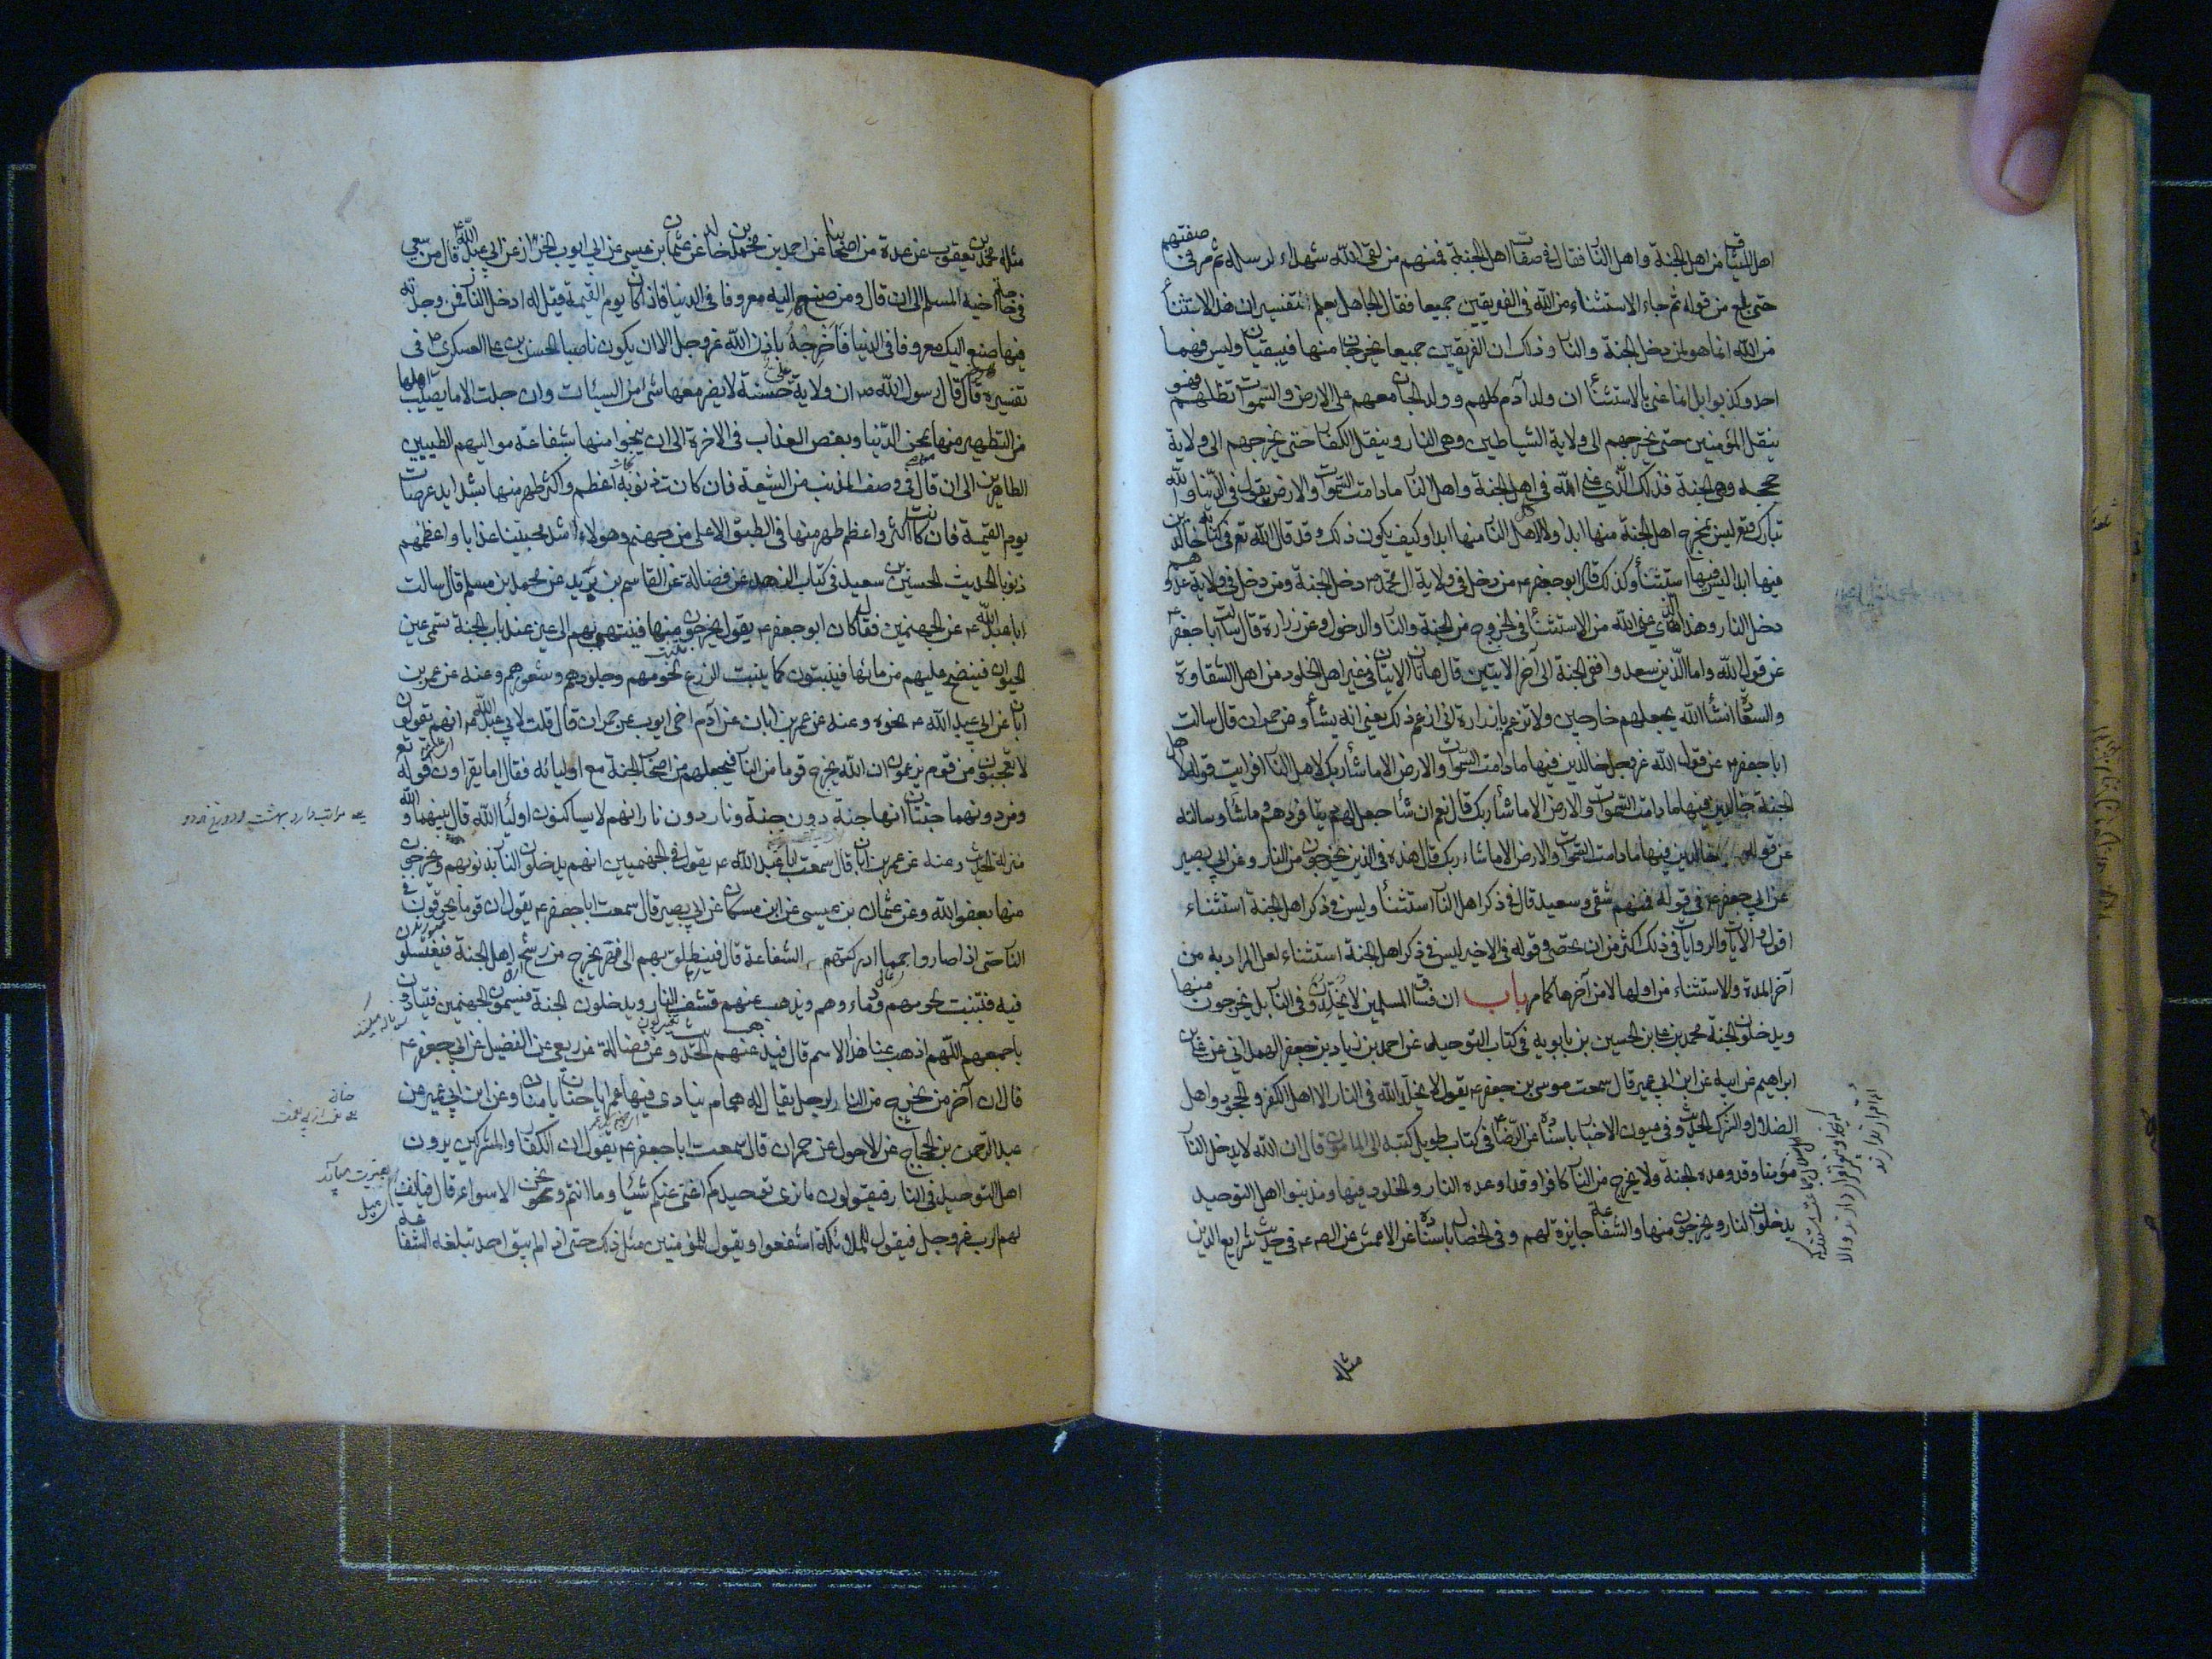 اهل الميثاق من اهل الجنة واهل النار فقال فى صفات اهل الجنة فمنهم من لقى الله شهداء لرسله ثم مر فى صفتهم
حتى بلغ من قوله ثم جاء الاستثناء من الله فى الفريقين جميعا فقال الجاهل بعلم التفسير ان هذا الاستثناء
من الله انما هو لمن دخل الجنة والنار وذلك ان الفريقين جميعا يخرجان منها فيبقيان وليس فيهما
احد وكذبوا بل انما عنى بالاستثناء ان ولد آدم كلهم وولد الجان معهم على الارض والسموات تظلهم فهو
ينقل المؤمنين حتى يخرجهم الى ولاية الشياطين وهى النار وينقل الكفار حتى يخرجهم الى ولاية
حججه وهى الجنة فذلك الذى عنى الله فى اهل الجنة واهل النار ما دامت السموات والارض يقول فى الدنيا والله
تبارك وتع ليس بمخرج اهل الجنة منها ابدا ولا اهل النار منها ابدا وكيف يكون ذلك وقد قال الله تع فى كتابه خالدين
فيها ابدا ليس فيها استثناء وكذلك قال ابو جعفر ع من دخل فى ولاية آل محمد ص دخل الجنة ومن دخل فى ولاية عدوهم
دخل النار وهذا الذى عنى الله من الاستثناء فى الخروج من الجنة والنار والدخول وعن زرارة قال سالت ابا جعفر ع
عن قول الله واما الذين سعدوا ففى الجنة الى آخر الايتين قال هاتان الايتان فى غير اهل الخلود من اهل الشقاوة
والسعادة ان شاء الله يجعلهم خارجين ولا تزعم يا زرارة انى ازعم ذلك يعنى انه يشاء وعن حمران قال سالت
ابا جعفر ع عن قول الله عز وجل خالدين فيها ما دامت السموات والارض الا ما شاء ربك لاهل النار افرايت قوله لاهل
الجنة خالدين فيها ما دامت السموات والارض الا ما شاء ربك قال نعم ان شاء جعل لهم دنيا فردهم وما شاء وسالته
عن قول الله خالدين فيها ما دامت السموات والارض الا ما شاء ربك قال هذه فى الذين يخرجون من النار وعن ابى بصير
عن ابى جعفر ع فى قوله فمنهم شقى وسعيد قال فى ذكر اهل النار استثناء وليس فى ذكر اهل الجنة استثناء
اقول والايات والروايات فى ذلك اكثر من ان تحصى وقوله فى الاخير ليس فى ذكر اهل الجنة استثناء لعل المراد به من
آخر المدة والاستثناء من اولها لا من آخرها كما مر باب ان فساق المسلمين لا يخلدون فى النار بل يخرجون منها
ويدخلون الجنة محمد بن على بن الحسين بن بابويه فى كتاب التوحيد عن احمد بن زياد بن جعفر الهمدانى عن على بن
ابراهيم عن ابيه عن ابن ابى عمير قال سمعت موسى بن جعفر ع يقول لا يخلد الله فى النار الا اهل الكفر والجحود واهل
الضلال والشرك الحديث وفى عيون الاخبار باسناده عن الرضا ع فى كتاب طويل كتبه الى المامون قال ان الله لا يدخل النار
مؤمنا وقد وعده الجنة ولا يخرج من النار كافرا وقد اوعده النار والخلود فيها ومذنبوا اهل التوحيد
يدخلون النار ويخرجون منها والشفاعة جايزة لهم وفى الخصال باسناده عن الاعمش عن الص ع فى حديث شرايع الدين
مثله
مثله محمد بن يعقوب عن عدة من اصحابنا عن احمد بن محمد بن خالد عن عثمان بن عيسى عن ابى ايوب الخزاز عن ابى عبد الله ع قال من سعى
فى حاجة اخيه المسلم الى ان قال ومن صنع اليه معروفا فى الدنيا فاذا كان يوم القيمة قيل له ادخل النار فمن وجدته
فيها صنع اليك معروفا فى الدنيا فاخرجه باذن الله عز وجل الا ان يكون ناصبا الحسن بن على العسكرى ع فى
تفسيره قال قال رسول الله ص ان ولاية على حسنة لا يضر معها شئ من السيئات وان جلت الا ما يصيب اهلها
من التطهير منها بمحن الدنيا وبعض العذاب فى الاخرة الى ان ينجوا منها بشفاعة مواليهم الطيبين
الطاهرين الى ان قال فى وصف المذنب من الشيعة فان كانت ذنوبه اعظم واكثر طهر منها بشدايد عرصات
يوم القيمة فان كانت اكثر واعظم طهر منها فى الطبق الاعلى من جهنم وهؤلاء اشد محبينا عذابا واعظمهم
ذنوبا الحديث الحسين بن سعيد فى كتاب الزهد عن فضالة عن القاسم بن بريد عن محمد بن مسلم قال سالت
ابا عبد الله ع عن الجهنميين فقال كان ابو جعفر ع يقول يخرجون منها فينتهى بهم الى عين عند باب الجنة تسمى عين
الحيوان فينضح عليهم من مائها فينبتون كما ينبت الزرع لحومهم وجلودهم وشعورهم وعنه عن عمر بن
ابان عن ابى عبد الله ع نحوه وعنه عن عمر بن ابان عن آدم اخى ايوب عن حمران قال قلت لابى عبد الله ع انهم يقولون
لا تعجبون من قوم يزعمون ان الله يخرج قوما من النار فيجعلهم من اصحاب الجنة مع اوليائه فقال اما يقراون قوله تع
ومن دونهما جنتان انها جنة دون جنة ونار دون نار انهم لا يساكنون اولياء الله قال بينهما والله
منزلة الحديث وعنه عن عمر بن ابان قال سمعت ابا عبد الله ع يقول فى الجهنميين انهم يدخلون النار بذنوبهم ويخرجون
منها بعفو الله وعن عثمان بن عيسى عن ابن مسكان عن ابى بصير قال سمعت ابا جعفر ع يقول ان قوما يحرقون فى
النار حتى اذا صاروا حمما ادركتهم الشفاعة قال فينطلق بهم الى نهر يخرج من رشح اهل الجنة فيغتسلون
فيه فتنبت لحومهم ودماءوهم ويذهب عنهم قشف النار ويدخلون الجنة فيسمون الجهنميين فينادون
باجمعهم اللهم اذهب عنا هذا الاسم قال فيذهب عنهم الحديث وعن فضالة عن ربعى عن الفضيل عن ابى جعفر ع
قال ان آخر من يخرج من النار لرجل يقال له همام ينادى فيها عمرا يا حنان يا منان وعن ابن ابى عمير عن
عبد الرحمن بن الحجاج عن الاحول عن حمران قال سمعت ابا جعفر ع يقول ان الكفار والمشركين يرون
اهل التوحيد فى النار فيقولون ما نرى توحيدكم اغنى عنكم شيئا وما انتم ونحن الا سواء قال فيانف
لهم الرب عز وجل فيقول للملائكة اشفعوا ويقول للمؤمنين مثل ذلك حتى اذا لم يبق احد تبلغه الشفاعة